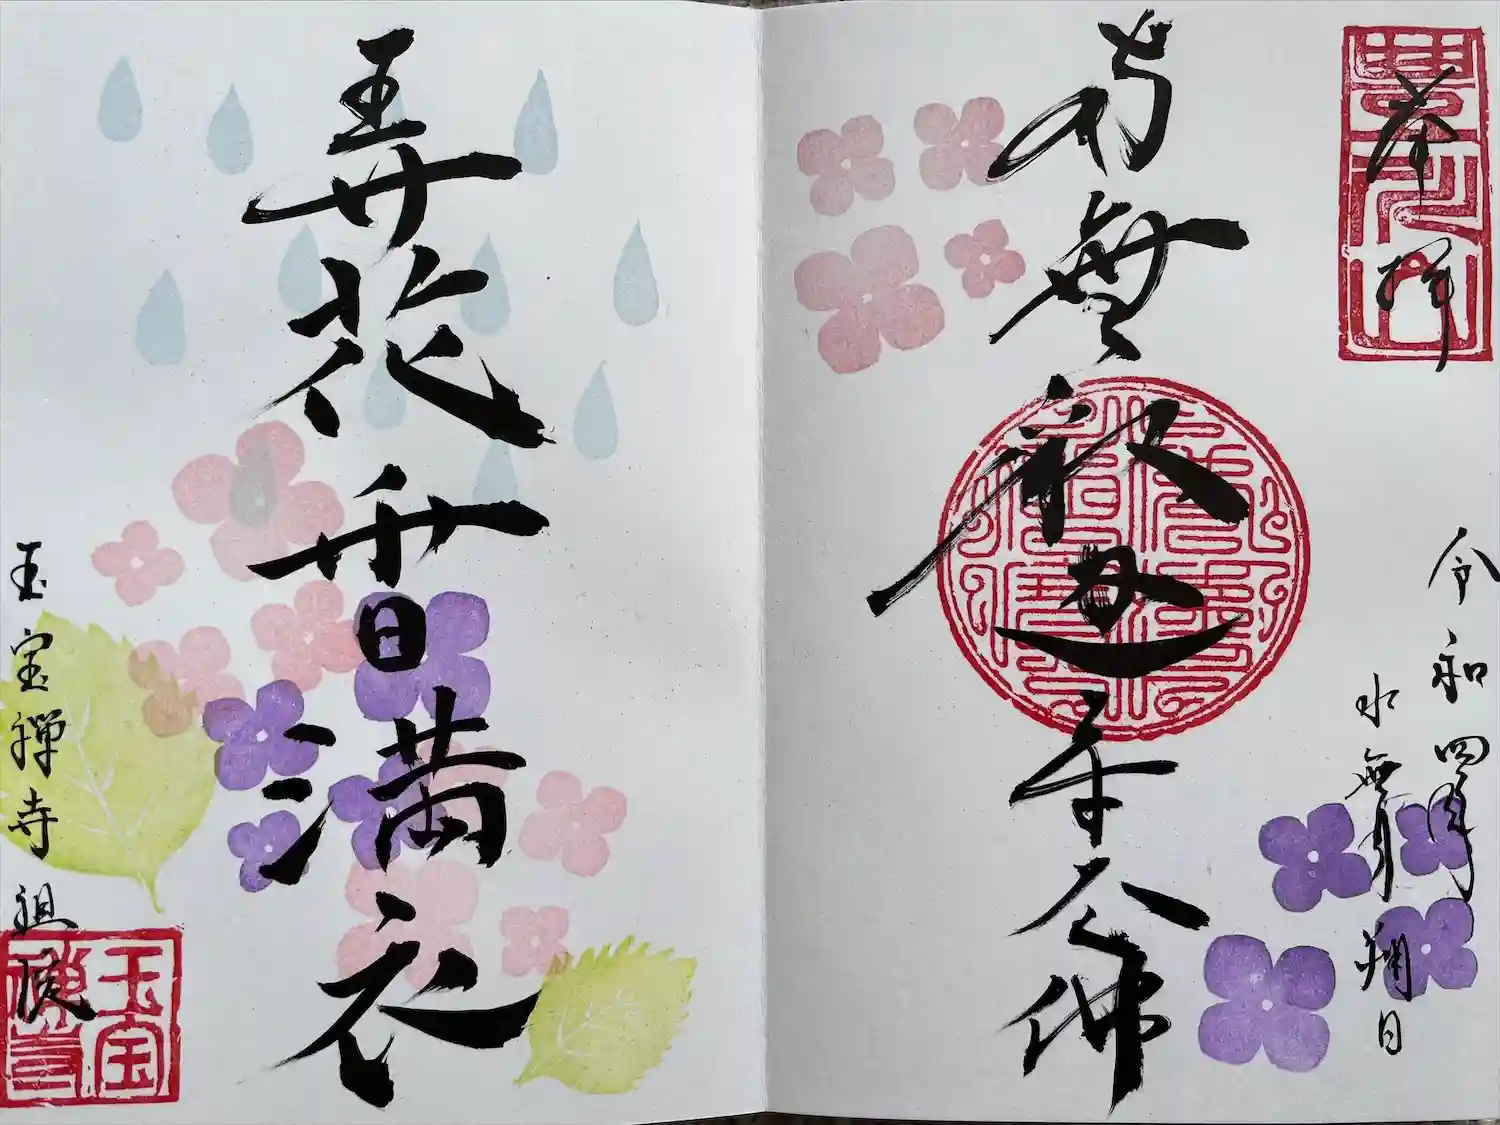 奉拝
令和四年
水無月朔日
南無釈迦牟尼仏
弄花香満衣
玉宝禅寺祖院